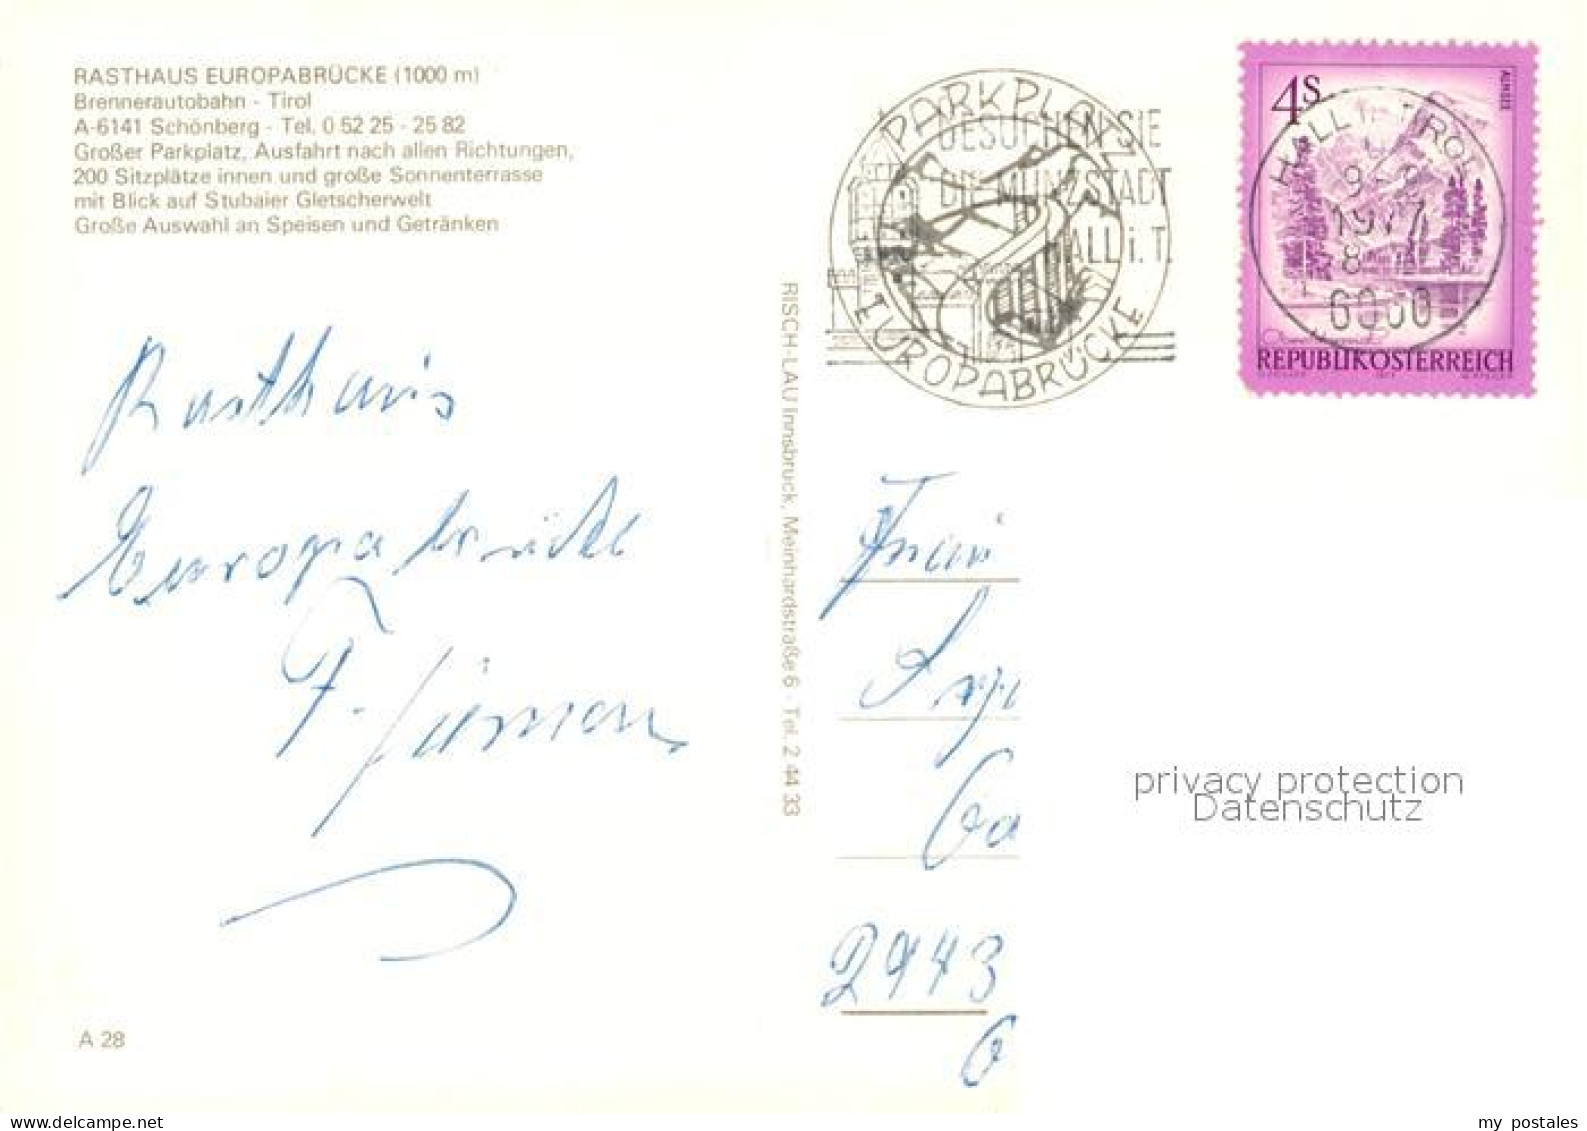 RASTHAUS EUROPABRÜCKE (1000 m)
Brennerautobahn - Tirol
A-6141 Schönberg - Tel. 0 52 25 - 25 82
Großer Parkplatz, Ausfahrt nach allen Richtungen,
200 Sitzplätze innen und große Sonnenterrasse
mit Blick auf Stubaier Gletscherwelt
Große Auswahl an Speisen und Getränken
PARKPLATZ
EUROPABRÜCKE
BESUCHEN SIE
DIE MÜNZSTADT
HALL i. T.
4S
ALMSEE
HALL i. TIROL
1977
6060
REPUBLIK ÖSTERREICH
Rasthaus
Europabrücke
F.
RISCH-LAU Innsbruck, Meinhardstraße 6 - Tel. 2 44 33
Frau
2443
privacy protection
Datenschutz
A 28
delcampe.net
my_postales